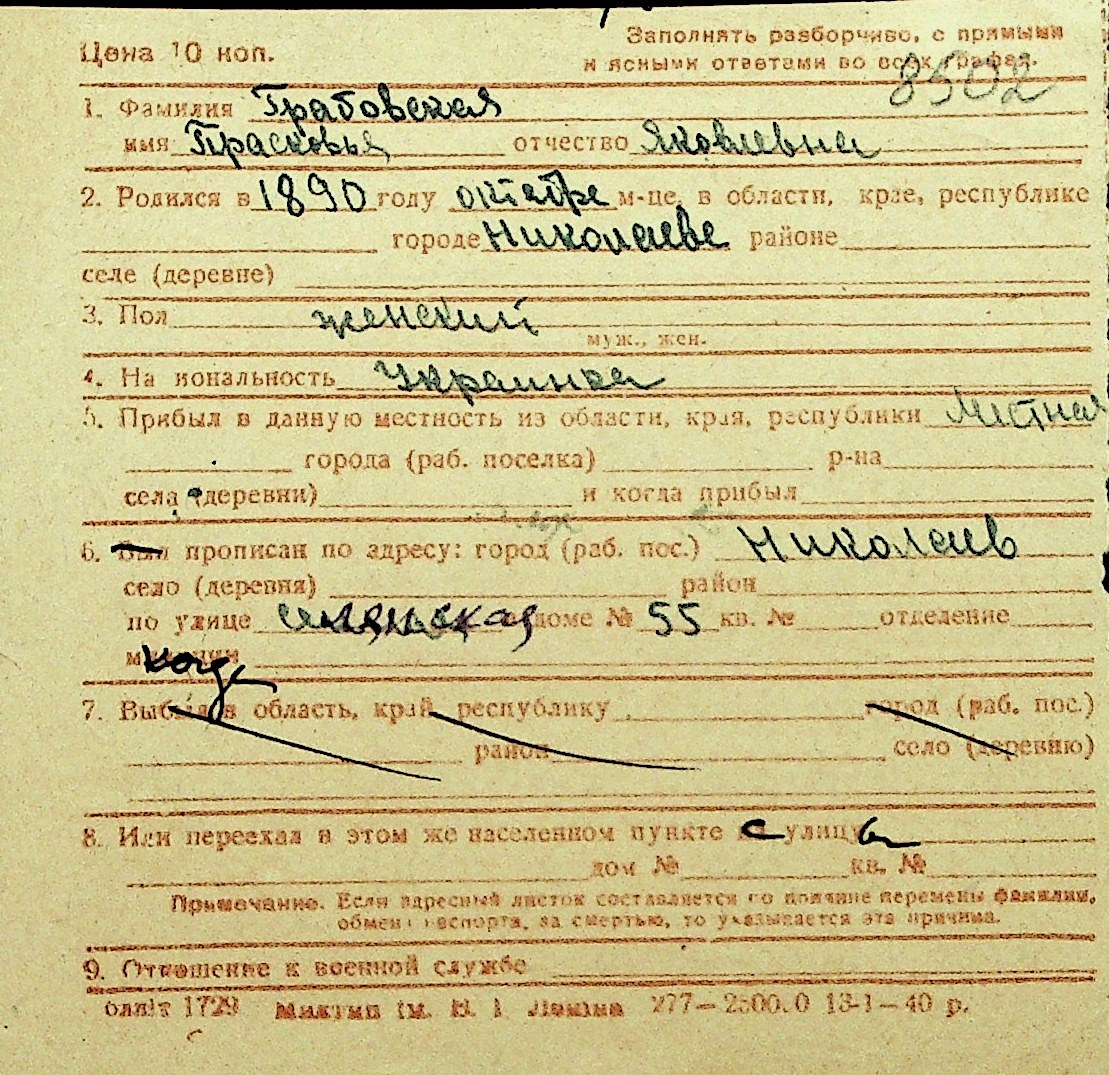 Цена 10 коп.
Заполнять разборчиво, с прямыми
и ясными ответами во всех графах.
8502
1. Фамилия Грабовская
имя Прасковья отчество Яковлевна
2. Родился в 1890 году октябре м-це, в области, крае, республике
городе Николаеве районе
селе (деревне)
3. Пол женский
муж., жен.
4. На иональность Украинка
5. Прибыл в данную местность из области, края, республики Местная
города (раб. поселка) р-на
села (деревни) и когда прибыл
6. Был прописан по адресу: город (раб. пос.) Николаев
село (деревня) район
по улице доме № 55 кв. № отделение
7. Выбыл в область, край республику город (раб. пос.)
район село (деревню)
8. Или переехал в этом же населенном пункте с улицы
дом № кв. №
Примечание. Если адресный листок составляется по причине перемены фамилии,
обмена паспорта, за смертью, то указывается эта причина.
9. Отношение к военной службе
1729 277— 13-1-40 р.